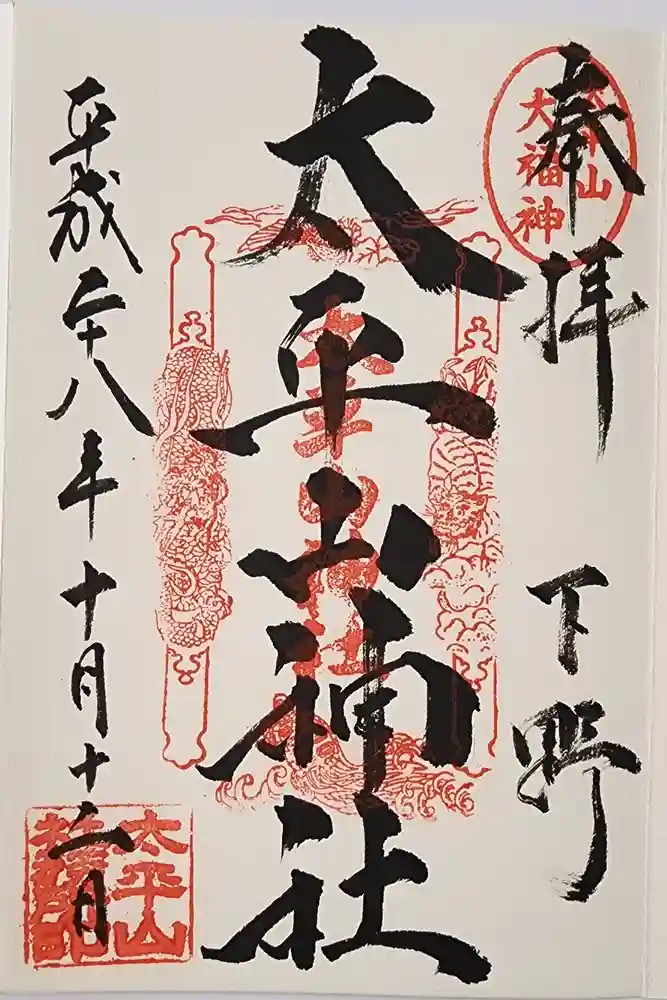 奉拝
下野
太平山
大福神
太平山神社
太平山神社
平成二十八年十月十二日
太平山